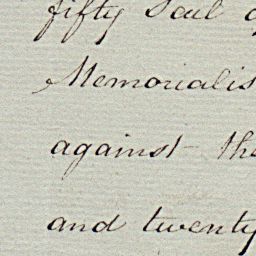 fifty Sail
Memorialis
against the
and twenty